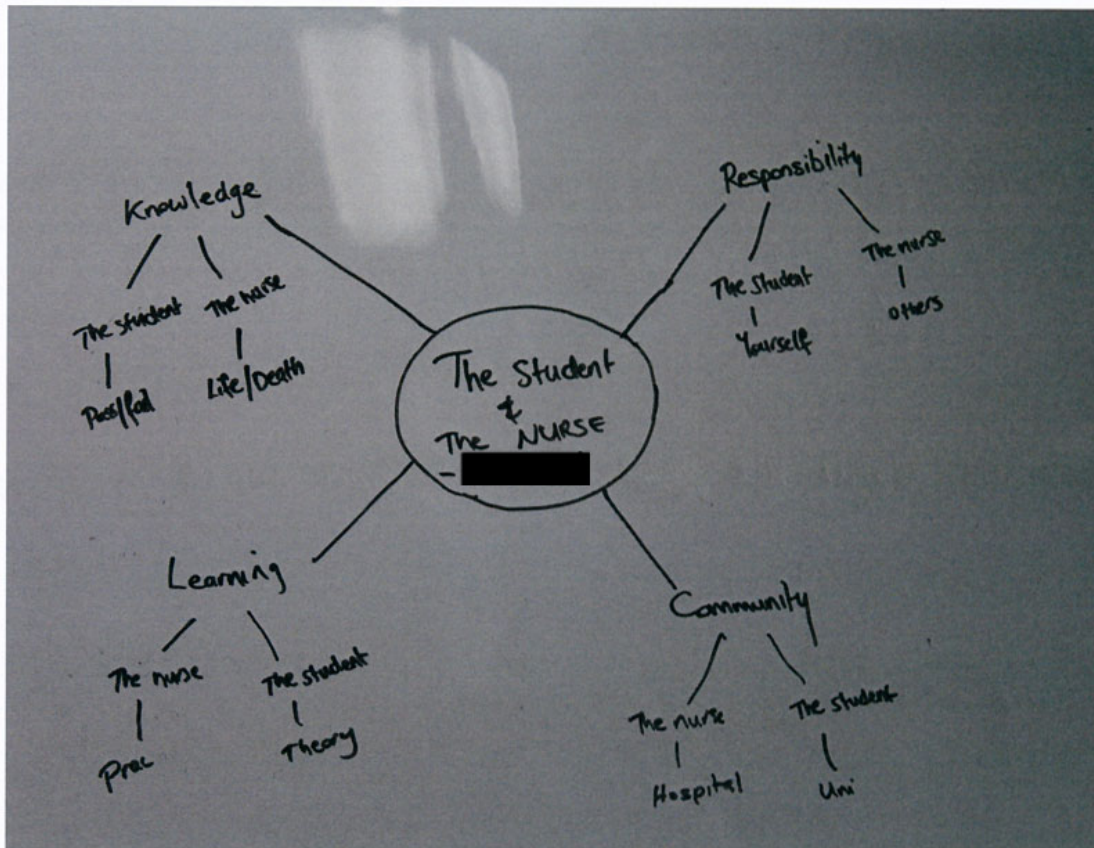 Knowledge
The student
Pass/fail
The nurse
Life/Death
Responsibility
The student
Yourself
The nurse
others
The Student
&
The NURSE
-
Learning
The nurse
Prac
The student
Theory
Community
The nurse
Hospital
The student
Uni